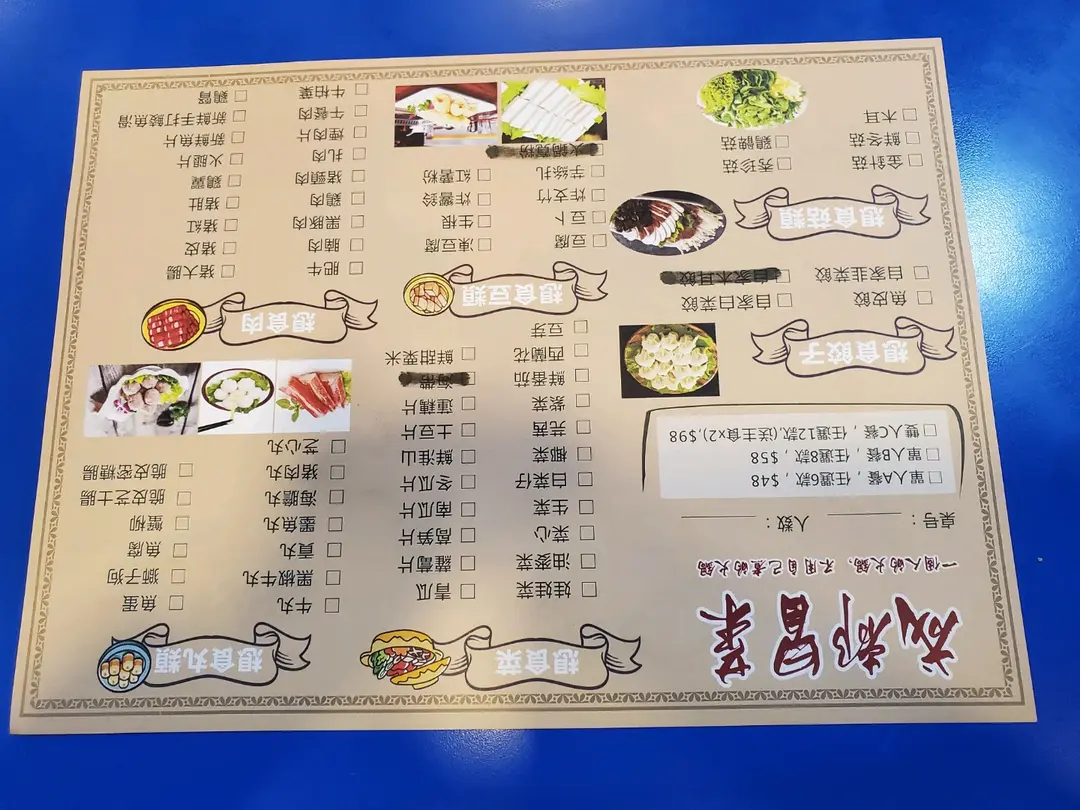 成都冒菜
一個人的火鍋，不用自己煮的火鍋
桌号： 人数：
□單人A餐，任選6款，$48
□單人B餐，任選8款，$58
□雙人C餐，任選12款,(送主食x2),$98
想食餃子
□魚皮餃 □自家白菜餃
□自家韭菜餃 □自家木耳餃
想食菇類
□金針菇 □秀珍菇
□鮮冬菇 □鷄髀菇
□木耳
想食菜
□娃娃菜 □青瓜
□油麥菜 □蘿蔔片
□菜心 □萵笋片
□生菜 □南瓜片
□白菜仔 □冬瓜片
□椰菜 □鮮淮山
□芫茜 □土豆片
□紫菜 □蓮藕片
□鮮番茄 □海帶
□西蘭花 □鮮甜粟米
□豆芽
想食豆類
□豆腐 □凍豆腐
□豆卜 □生根
□炸支竹 □炸響鈴
□芋絲扎 □紅薯粉
□火鍋寬粉
想食丸類
□牛丸 □魚蛋
□黑椒牛丸 □獅子狗
□貢丸 □魚腐
□墨魚丸 □蟹柳
□海膽丸 □脆皮芝士腸
□豬肉丸 □脆皮蜜糖腸
□芝心丸
想食肉
□肥牛 □豬大腸
□腩肉 □豬皮
□黑豚肉 □豬紅
□鷄肉 □豬肚
□豬頸肉 □鷄翼
□扎肉 □火腿片
□煙肉片 □新鮮魚片
□午餐肉 □新鮮手打鯪魚滑
□牛柏葉 □鷄腎